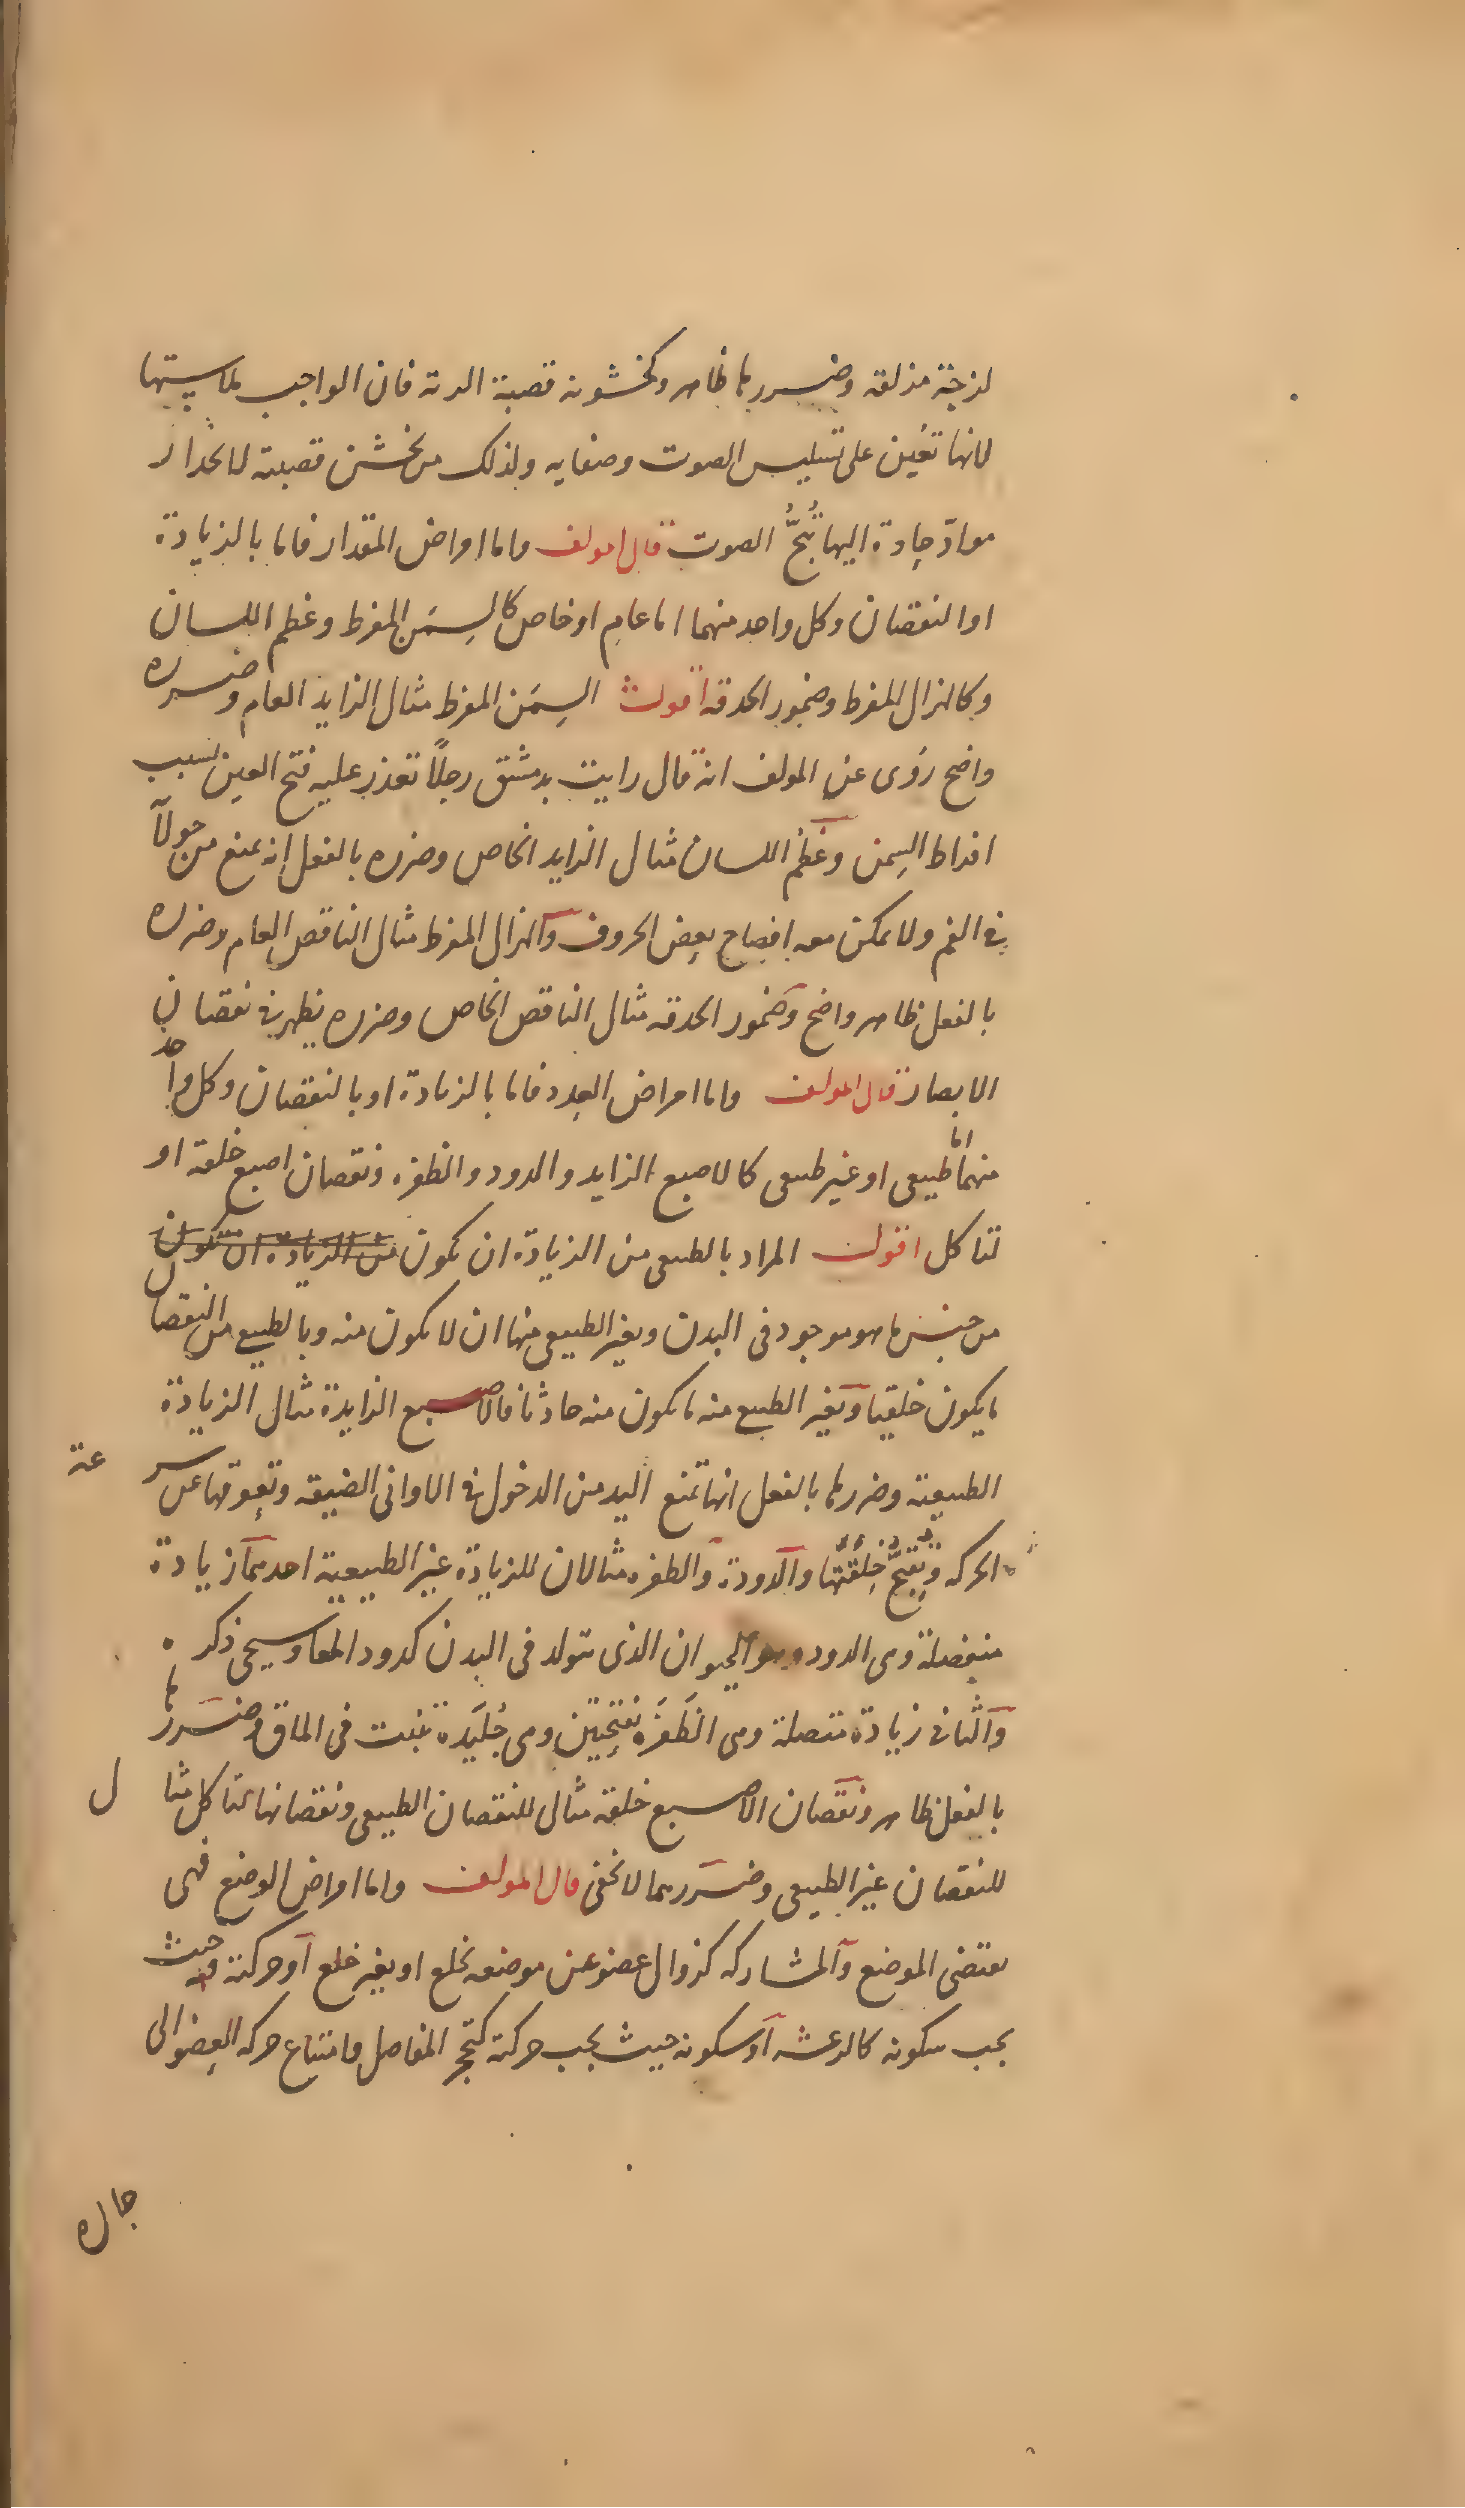 لزجة مزلقه وضررها ظاهر وكخشونة قصبة الرئة فان الواجب ملاستها
لانها تعين على تسليس الصوت وصفايه ولذلك من خشن قصبته لانحدار
موادّ حادة اليها تُبَحُّ الصوت قال المولف واما امراض المقدار فاما بالزيادة
او النقصان وكل واحد منهما اما عام او خاص كالسِمَن المفرط وعظم اللسان
وكالهزال المفرط وضمور الحدقه اقول السِمَن المفرط مثال الزايد العام وضرره
واضح رُوى عن المولف انه قال رايت بدمشق رجلًا تعذر عليه فتح العين بسبب
افراط السِمن وعَظم اللسان مثال الزايد الخاص وضرره بالفعل انه يمنع من جولانه
فى الفم ولا يمكن معه افصاح بعض الحروف والهزال المفرط مثال الناقص العام وضرره
بالفعل ظاهر واضح وضمور الحدقه مثال الناقص الخاص وضرره يظهر فى نقصان
الابصار قال المولف واما امراض العدد فاما بالزيادة او بالنقصان وكل واحد
منهما اما طبيعى او غير طبيعى كالاصبع الزايد والدود والظفره ونقصان اصبع خلقة او
لتاكل اقول المراد بالطبيعى من الزيادة ان يكون من الزيادة ان تكون
من جنس ما هو موجود فى البدن وبغير الطبيعى منها ان لا يكون منه وبالطبيعى من النقصان
ما يكون خلقيا وبغير الطبيعى منه ما يكون منه حادثا فالاصبع الزايدة مثال الزيادة
الطبيعية وضررها بالفعل انها تمنع اليد من الدخول فى الاوانى الضيقه وتعوقها عن سرعة
الحركه وتُقبِّحُ خِلقَتَها والدودة والظفره مثالان للزيادة غير الطبيعية احدهما زيادة
منفصلة وهى الدود وهو الحيوان الذى يتولد فى البدن كدود المعا وسيجى ذكره
والثانى زيادة متصلة وهى الظَفَرَه بفتحتين وهى جُلَيدة تنبت فى الماق وضررها
بالفعل ظاهر ونقصان الاصبع خلقة مثال للنقصان الطبيعى ونقصانها لتاكل مثال
للنقصان غير الطبيعى وضررهما لا يخفى قال المولف واما امراض الوضع فهى
يقتضى الموضع والمشاركه كزوال عضو عن موضعه بخلع او بغير خلع او حركته حيث
يجب سكونه كالرعشه او سكونه حيث يجب حركته كتحجر المفاصل وامتناع حركه العضو الى
جاره